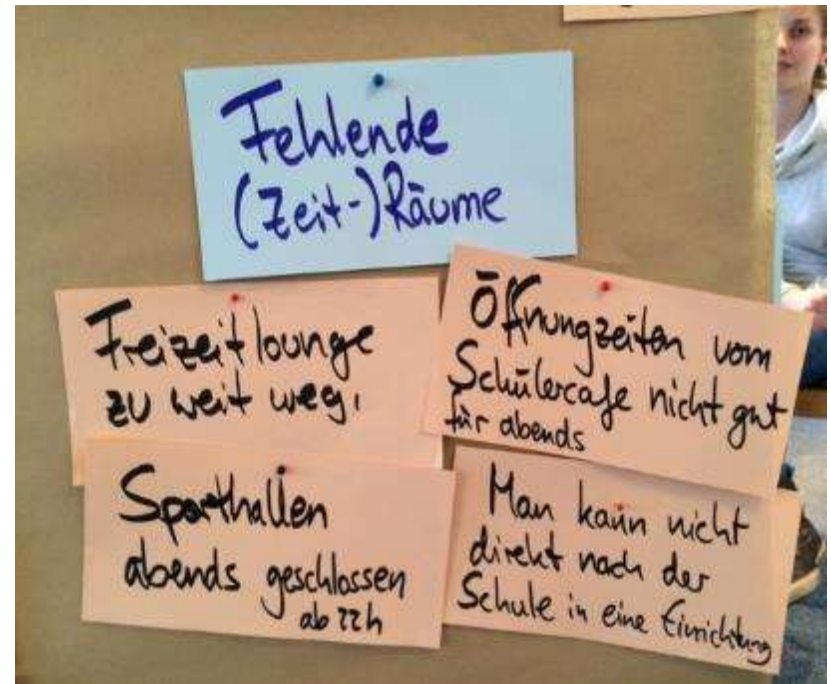 Fehlende
(Zeit-)Räume
Freizeitlounge
zu weit weg.
Öffnungzeiten vom
Schülercafe nicht gut
für abends
Sporthallen
abends geschlossen
ab 22h
Man kann nicht
direkt nach der
Schule in eine Einrichtung